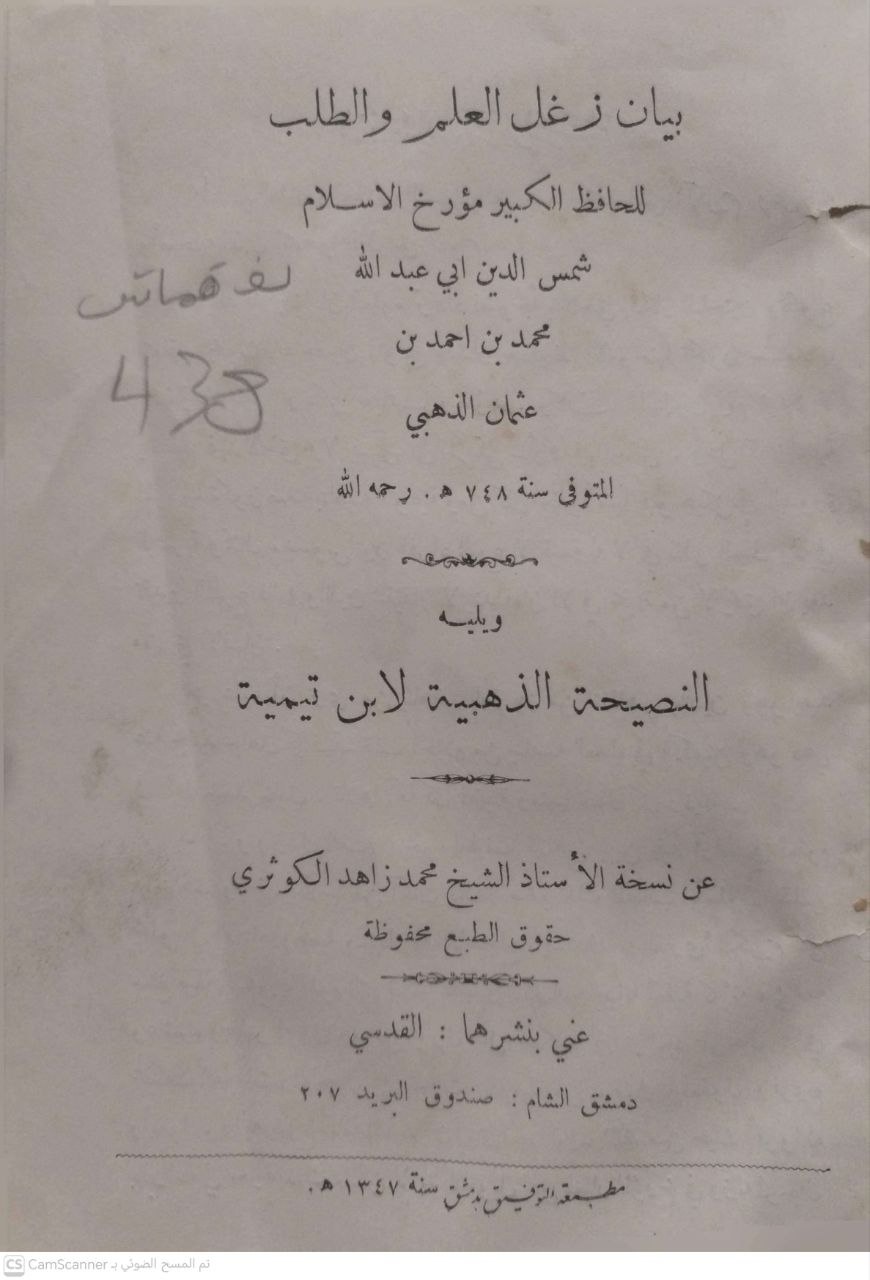 بيان زغل العلم والطلب
للحافظ الكبير مؤرخ الاسلام
شمس الدين ابي عبد الله
محمد بن احمد بن
عثمان الذهبي
المتوفى سنة ٧٤٨ هـ . رحمه الله
438
ويليه
النصيحة الذهبية لابن تيمية
عن نسخة الأستاذ الشيخ محمد زاهد الكوثري
حقوق الطبع محفوظة
عني بنشرهما : القدسي
دمشق الشام : صندوق البريد ٢٠٧
مطبعة التوفيق بدمشق سنة ١٣٤٧ هـ .
CS CamScanner تم المسح الضوئي بـ